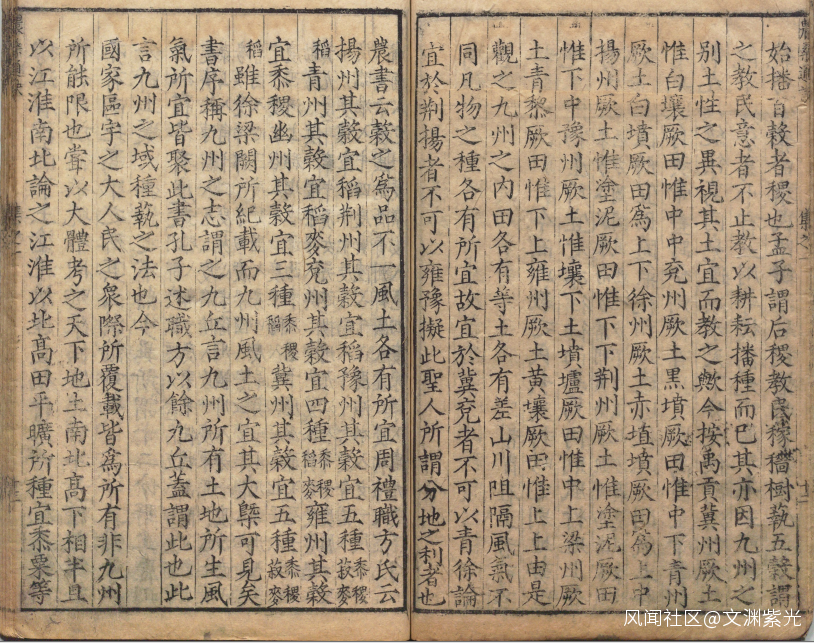 始播百穀者稷也孟子謂后稷教民稼穡樹藝五穀謂
之教民意者不止教以耕耘播種而已其亦因九州之
别土性之異視其土宜而教之歟今按禹貢冀州厥土
惟白壤厥田惟中中兖州厥土黒墳厥田惟中下青州
厥土白墳厥田爲上下徐州厥土赤埴墳厥田爲上中
揚州厥土惟塗泥厥田惟下下荆州厥土惟塗泥厥田
惟下中豫州厥土惟壤下土墳壚厥田惟中上梁州厥
土青黎厥田惟下上雍州厥土黄壤厥田惟上上由是
觀之九州之内田各有等土各有差山川阻隔風氣不
同凡物之種各有所宜故宜於冀兖者不可以青徐論
宜於荆揚者不可以雍豫擬此聖人所謂分地之利者也
農書云穀之爲品不一風土各有所宜周禮職方氏云
揚州其穀宜稻荆州其穀宜稻豫州其穀宜五種黍稷菽麥
稻青州其穀宜稻麥兖州其穀宜四種黍稷稻麥雍州其穀
宜黍稷幽州其穀宜三種黍稷稻冀州其穀宜五種黍稷菽麥
稻雖徐梁闕所紀載而九州風土之宜其大槩可見矣
書序稱九州之志謂之九丘言九州所有土地所生風
氣所宜皆聚此書孔子述職方以餘九丘蓋謂此也此
言九州之域種藝之法也今
國家區宇之大人民之衆際所覆載皆爲所有非九州
所能限也甞以大體考之天下地土南北髙下相半且
以江淮南北論之江淮以北髙田平曠所種宜黍粟等
集之一
十二
集之一
十三
风闻社区@文渊紫光